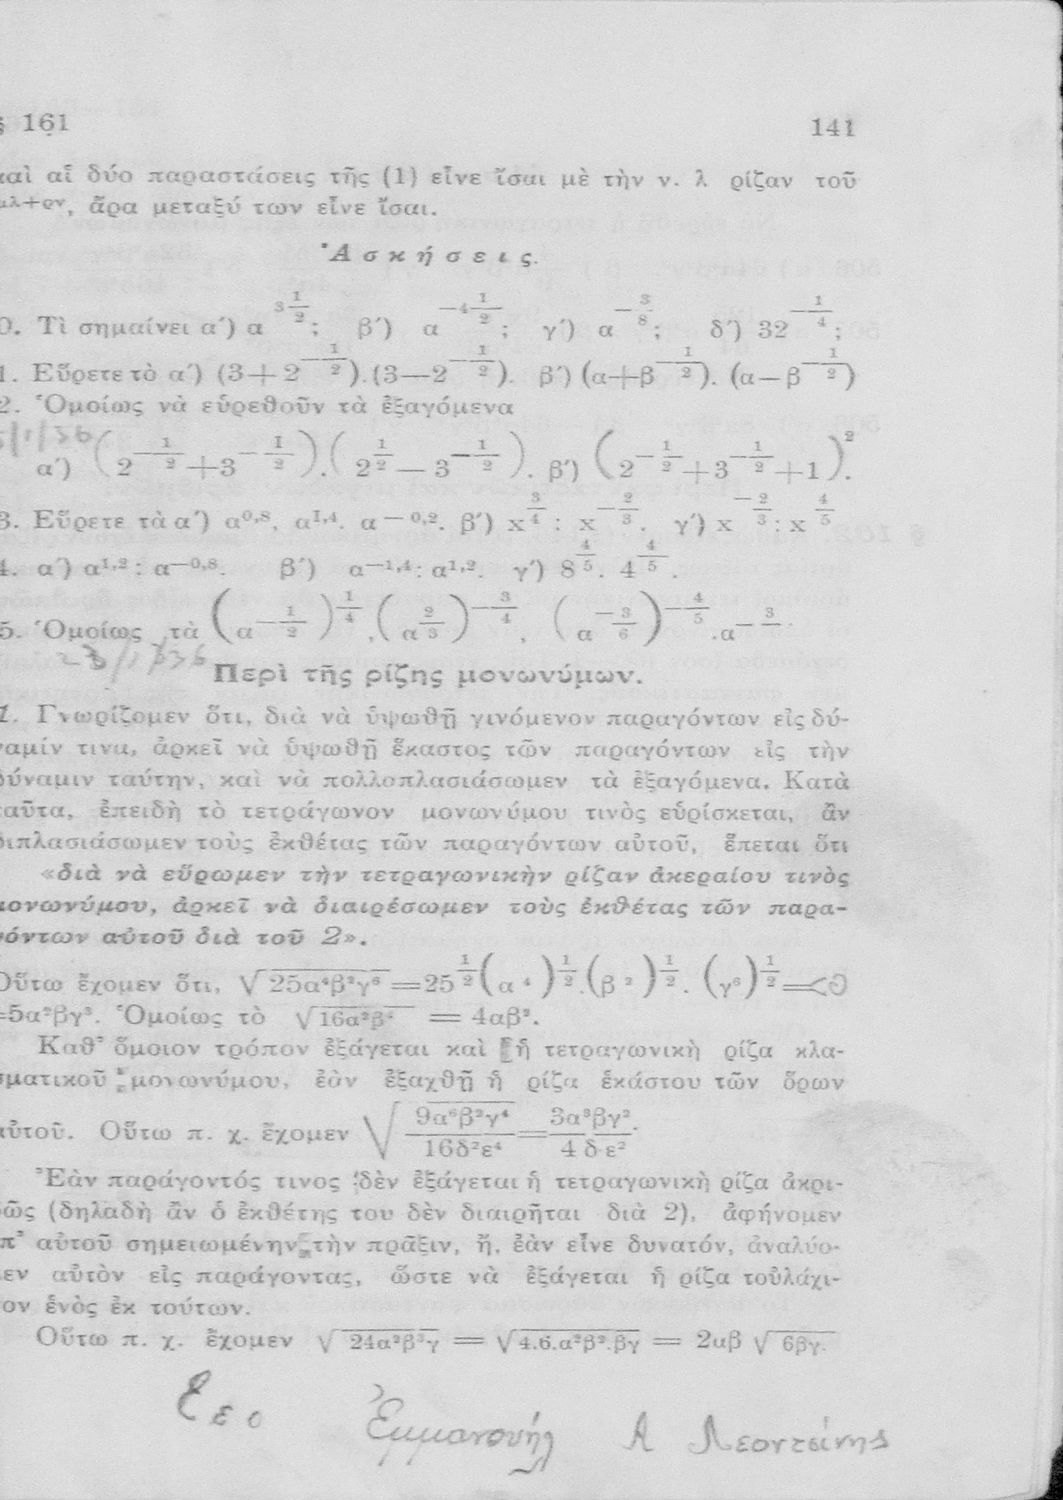 § 161 141
καὶ αἱ δύο παραστάσεις τῆς (1) εἶνε ἴσαι μὲ τὴν ν. λ ρίζαν τοῦ
μλ+ρν, ἄρα μεταξύ των εἶνε ἴσαι.
Ἀσκήσεις.
0. Τὶ σημαίνει α΄) α^{3 1/2}; β΄) α^{-4 1/2}; γ΄) α^{-3/8}; δ΄) 32^{-1/4};
1. Εὕρετε τὸ α΄) (3+2^{-1/2}).(3—2^{-1/2}). β΄) (α+β^{-1/2}). (α-β^{-1/2})
2. Ὁμοίως νὰ εὑρεθοῦν τὰ ἐξαγόμενα
/1/36
α΄) (2^{-1/2}+3^{-1/2}).(2^{1/2}-3^{-1/2}). β΄) (2^{-1/2}+3^{-1/2}+1)^2.
3. Εὕρετε τὰ α΄) α^{0,8}. α^{1,4}. α^{-0,2}. β΄) x^{3/4} : x^{-2/3}. γ΄) x^{-2/3} : x^{4/5}
4. α΄) α^{1,2} : α^{-0,8}. β΄) α^{-1,4} : α^{1,2}. γ΄) 8^{4/5}. 4^{4/5}.
5. Ὁμοίως τὰ (α^{-1/2})^{1/4}, (α^{2/3})^{-3/4}, (α^{-3/6})^{-4/5}.α^{-3}
Περὶ τῆς ρίζης μονωνύμων.
1. Γνωρίζομεν ὅτι, διὰ νὰ ὑψωθῇ γινόμενον παραγόντων εἰς δύ-
ναμίν τινα, ἀρκεῖ νὰ ὑψωθῇ ἕκαστος τῶν παραγόντων εἰς τὴν
δύναμιν ταύτην, καὶ νὰ πολλοπλασιάσωμεν τὰ ἐξαγόμενα. Κατὰ
ταῦτα, ἐπειδὴ τὸ τετράγωνον μονωνύμου τινὸς εὑρίσκεται, ἂν
διπλασιάσωμεν τοὺς ἐκθέτας τῶν παραγόντων αὐτοῦ, ἕπεται ὅτι
«διὰ νὰ εὕρωμεν τὴν τετραγωνικὴν ρίζαν ἀκεραίου τινὸς
μονωνύμου, ἀρκεῖ νὰ διαιρέσωμεν τοὺς ἐκθέτας τῶν παρα-
γόντων αὐτοῦ διὰ τοῦ 2».
Οὕτω ἔχομεν ὅτι, √25α⁴β²γ⁶ =25^{1/2}(α⁴)^{1/2}.(β²)^{1/2}. (γ⁶)^{1/2}=
=5α²βγ³. Ὁμοίως τὸ √16α²β⁴ = 4αβ².
Καθ' ὅμοιον τρόπον ἐξάγεται καὶ ἡ τετραγωνικὴ ρίζα κλα-
σματικοῦ μονωνύμου, ἐὰν ἐξαχθῇ ἡ ρίζα ἑκάστου τῶν ὅρων
αὐτοῦ. Οὕτω π. χ. ἔχομεν √(9α⁶β²γ⁴/16δ²ε⁴)=3α³βγ²/4 δ·ε².
Ἐὰν παράγοντός τινος δὲν ἐξάγεται ἡ τετραγωνικὴ ρίζα ἀκρι-
βῶς (δηλαδὴ ἂν ὁ ἐκθέτης του δὲν διαιρῆται διὰ 2), ἀφήνομεν
ἐπ' αὐτοῦ σημειωμένην τὴν πρᾶξιν, ἤ, ἐὰν εἶνε δυνατόν, ἀναλύο-
μεν αὐτὸν εἰς παράγοντας, ὥστε νὰ ἐξάγεται ἡ ρίζα τοὐλάχι-
στον ἑνὸς ἐκ τούτων.
Οὕτω π. χ. ἔχομεν √24α²β³γ = √4.6.α²β².βγ = 2αβ √6βγ.
Ἐμμανουήλ Α Λεοντσίνης